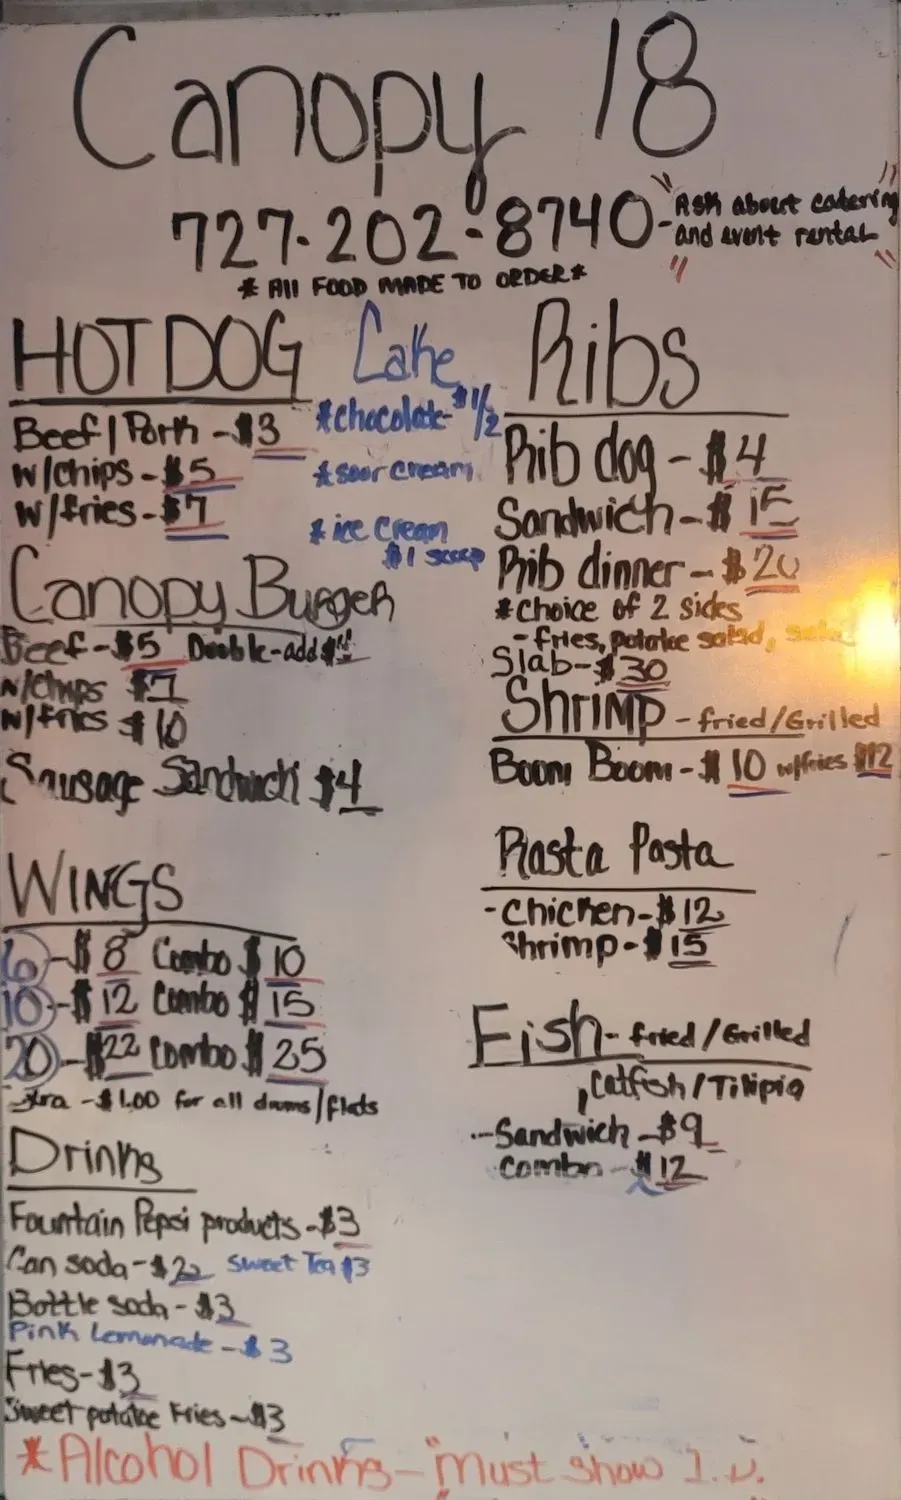 Canopy 18
727-202-8740-
"Ask about catering
and event rental"
* All FOOD MADE TO ORDER *
HOT DOG
Beef/Pork - $3
w/chips - $5
w/fries - $7
Cake
*chocolate-
*sour cream
*ice cream
$1 scoop
Canopy Burger
Beef - $5 Double-add
w/chips $7
w/fries $10
Sausage Sandwich $4
WINGS
6 - $8 Combo $10
10 - $12 Combo $15
20 - $22 combo $25
Extra - $1.00 for all drums/flats
Drinks
Fountain Pepsi products - $3
Can soda - $2 Sweet Tea $3
Bottle soda - $3
Pink Lemonade - $3
Fries - $3
Sweet potatoe Fries - $3
Ribs
Rib dog - $4
Sandwich - $15
Rib dinner - $20
*choice of 2 sides
- fries, potatoe salad,
Slab - $30
Shrimp - fried/Grilled
Boom Boom - $10 w/fries $12
Rasta Pasta
- Chicken - $12
Shrimp - $15
Fish - fried/Grilled
Catfish/Tilipia
- Sandwich - $9
combo - $12
*Alcohol Drinks - "Must show I.D.